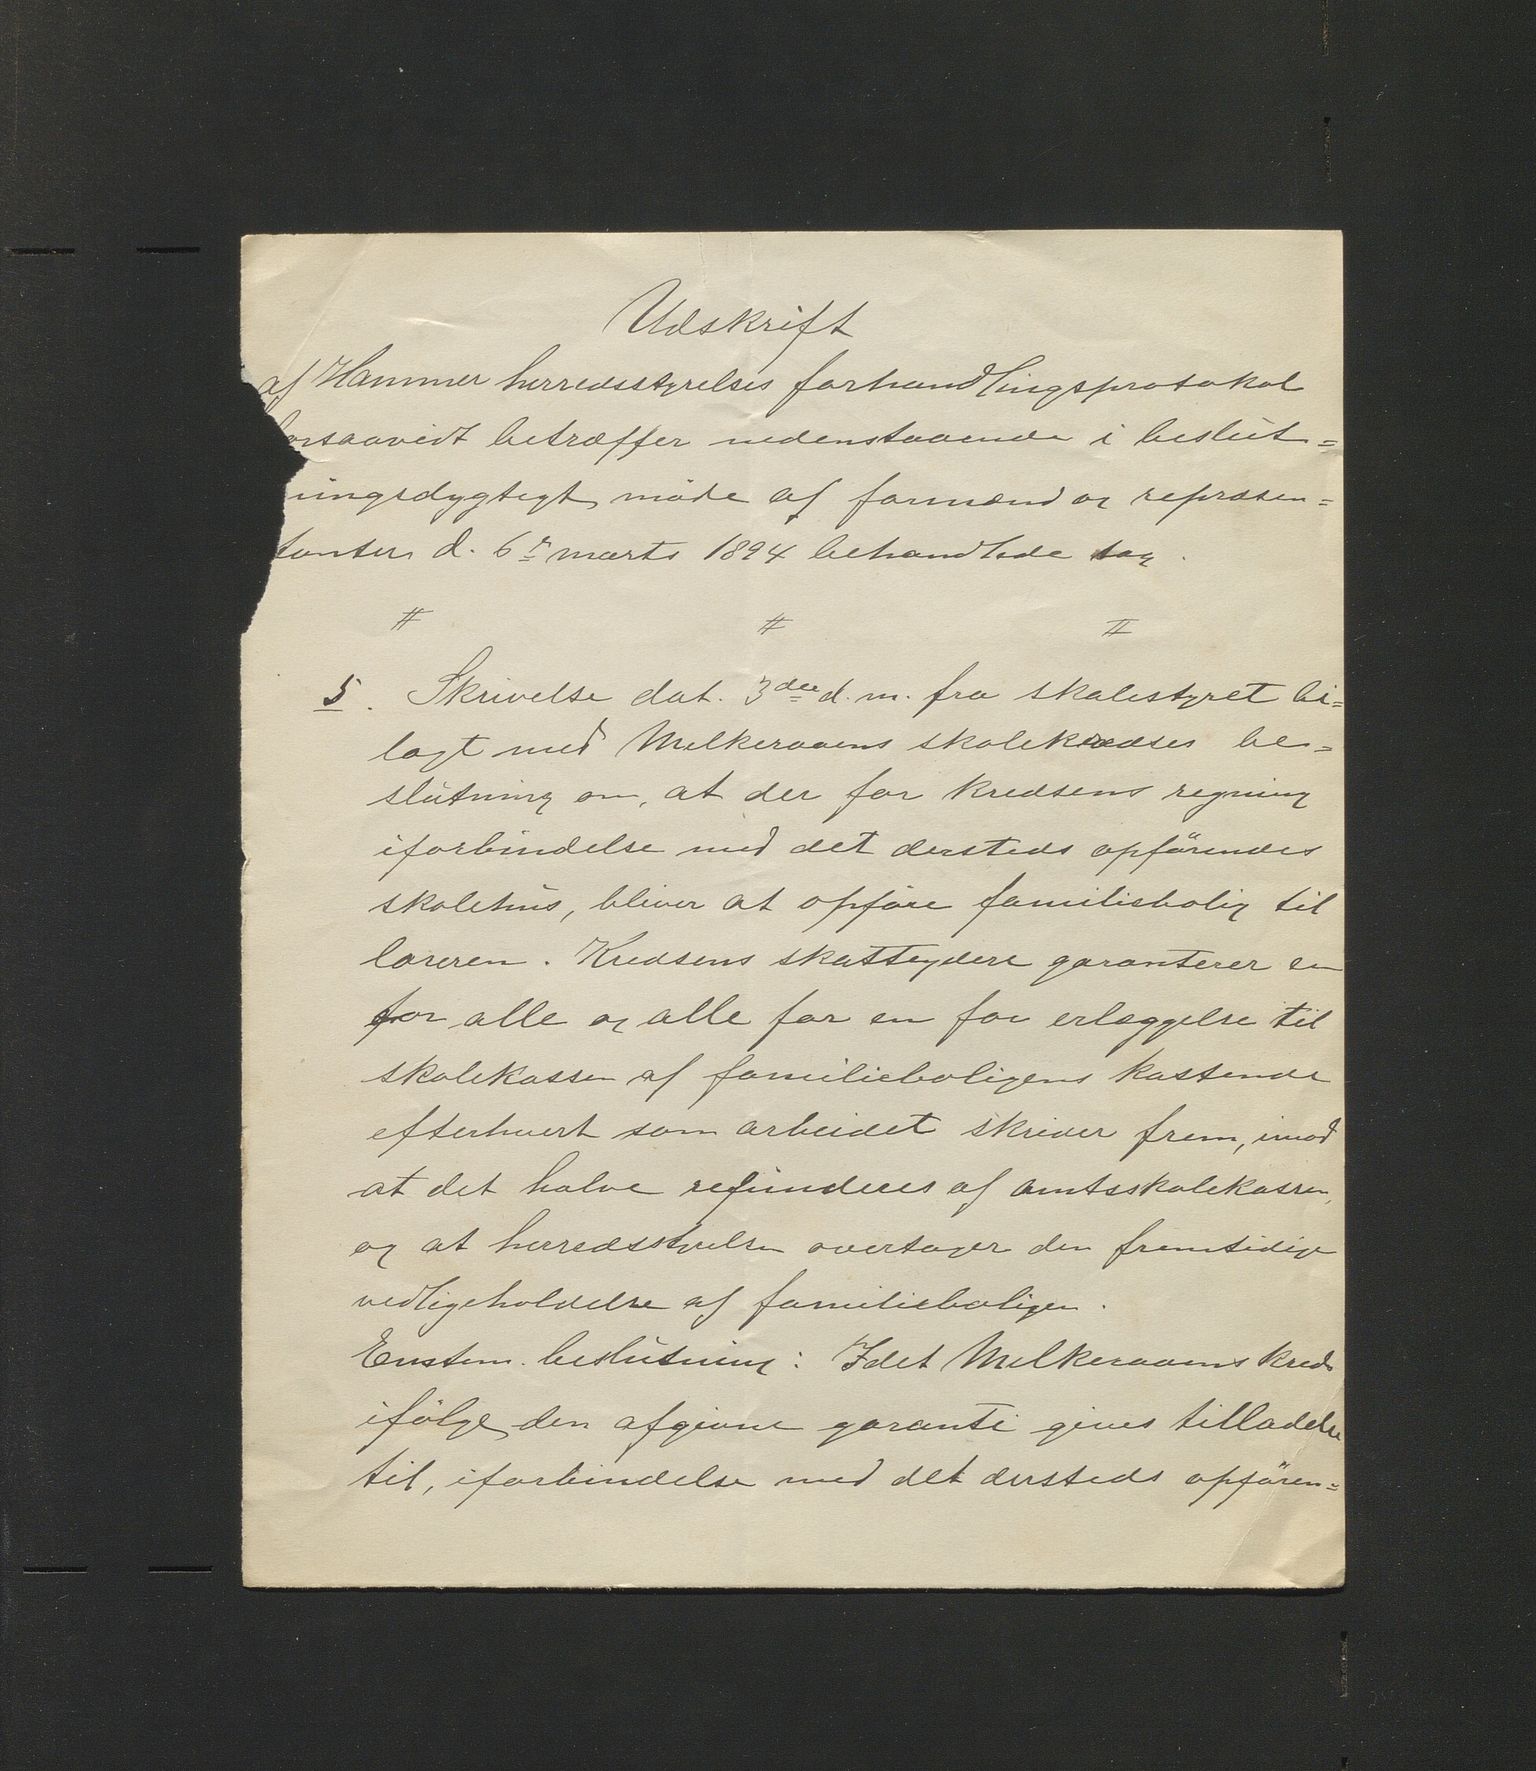 Udskrift
af Hammer herredsstyrelses forhandlingsprotokol
forsaavidt betræffer nedenstaaende i beslut=
ningsdygtigt möde af formænd og repræsen=
tanter d. 6r marts 1894 behandlede sag.
# # #
5. Skrivelse dat. 3die d. m. fra skolestyret bi=
lagt med Melkeraaens skolekredses be=
slutning om, at der for kredsens regning
iforbindelse med det dersteds opförendes
skolehus, bliver at opföre familiebolig til
læreren. Kredsens skatteydere garanterer en
for alle og alle for en for erlæggelse til
skolekassen af familieboligens kostende
efterhvert som arbeidet skrider frem, imod
at det halve refunderes af amtsskolekassen,
og at herredsstyrelsen overtager den fremtidige
vedligeholdelse af familieboligen.
Enstem. beslutning: Idet Melkeraaens kreds
ifölge den afgivne garanti gives tilladelse
til, iforbindelse med det dersteds opfören=